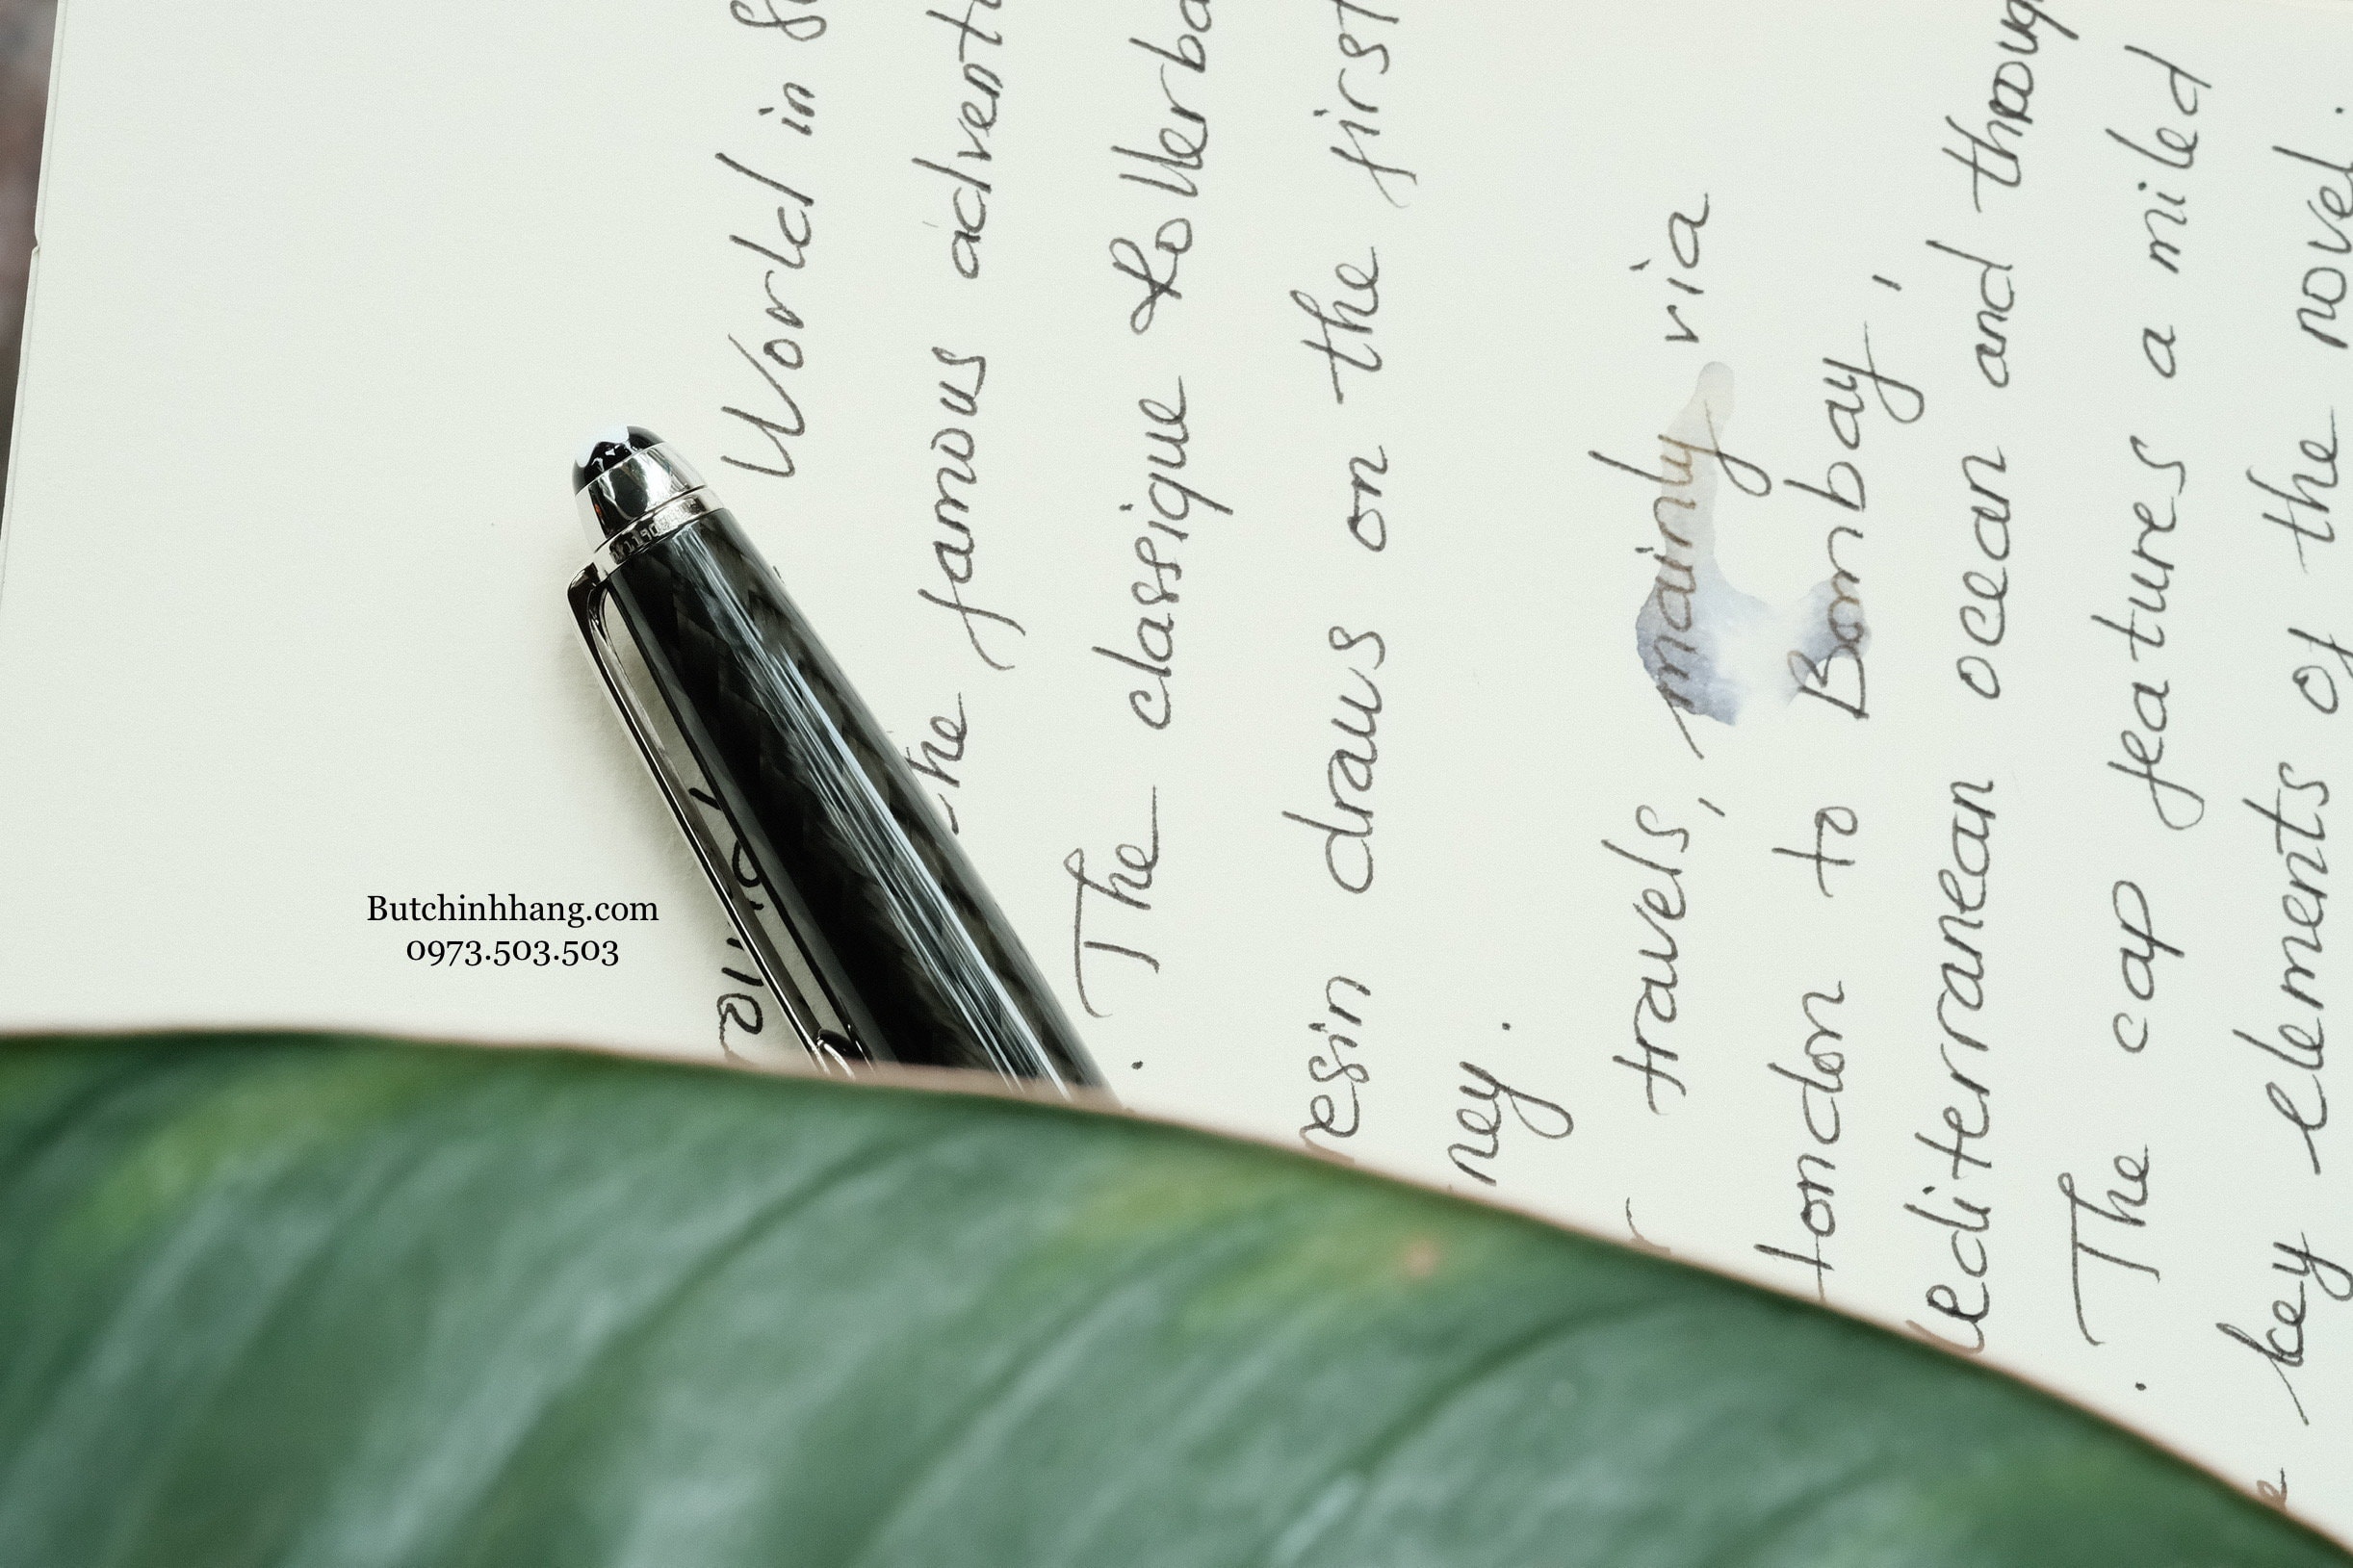 World in
famous
The classique Rollerba
resin draws on the first
ney.
travels, mainly via
London to Bombay,
editerranean ocean and throug
The cap features a mild
key elements of the novel.
Butchinhhang.com
0973.503.503